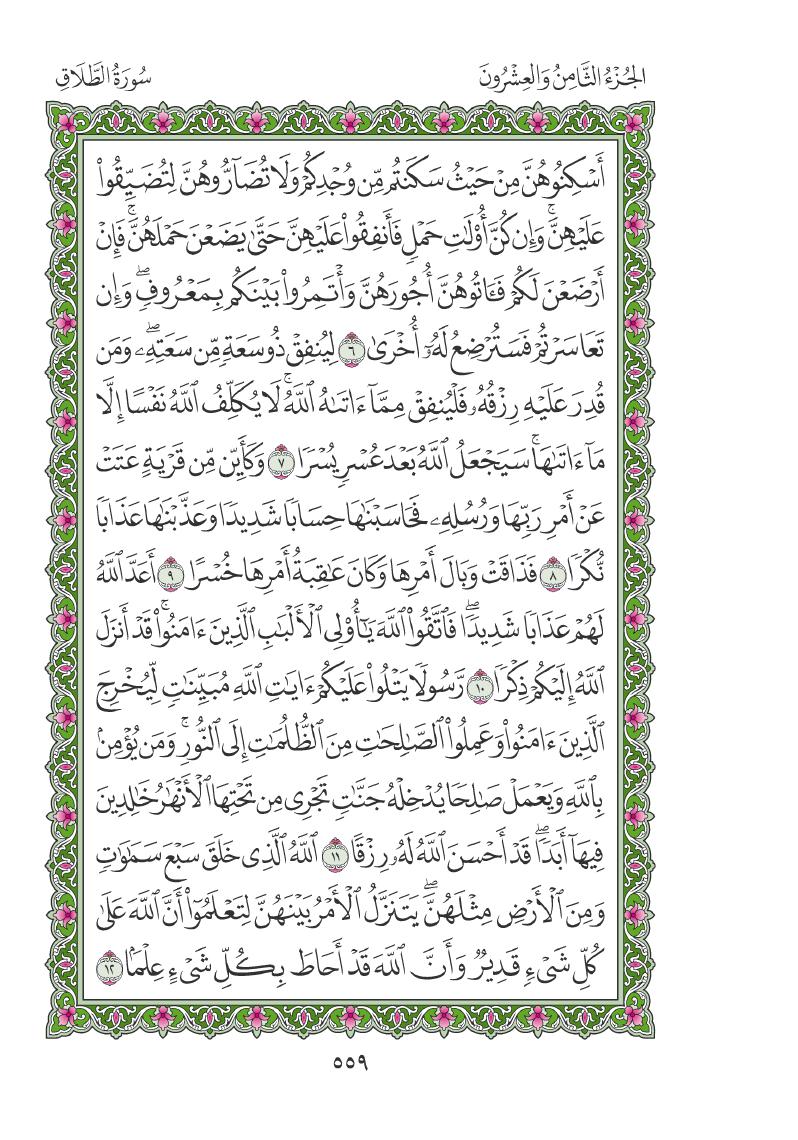 الجُزْءُ الثَّامِنُ وَالعِشْرُونَ
سُورَةُ الطَّلَاقِ
أَسْكِنُوهُنَّ مِنْ حَيْثُ سَكَنتُم مِّن وُجْدِكُمْ وَلَا تُضَآرُّوهُنَّ لِتُضَيِّقُوا۟
عَلَيْهِنَّ ۚ وَإِن كُنَّ أُو۟لَٰتِ حَمْلٍ فَأَنفِقُوا۟ عَلَيْهِنَّ حَتَّىٰ يَضَعْنَ حَمْلَهُنَّ ۚ فَإِنْ
أَرْضَعْنَ لَكُمْ فَـَٔاتُوهُنَّ أُجُورَهُنَّ وَأْتَمِرُوا۟ بَيْنَكُم بِمَعْرُوفٍ ۖ وَإِن
تَعَاسَرْتُمْ فَسَتُرْضِعُ لَهُۥٓ أُخْرَىٰ ٦ لِيُنفِقْ ذُو سَعَةٍ مِّن سَعَتِهِۦ ۖ وَمَن
قُدِرَ عَلَيْهِ رِزْقُهُۥ فَلْيُنفِقْ مِمَّآ ءَاتَىٰهُ ٱللَّهُ ۚ لَا يُكَلِّفُ ٱللَّهُ نَفْسًا إِلَّا
مَآ ءَاتَىٰهَا ۚ سَيَجْعَلُ ٱللَّهُ بَعْدَ عُسْرٍ يُسْرًا ٧ وَكَأَيِّن مِّن قَرْيَةٍ عَتَتْ
عَنْ أَمْرِ رَبِّهَا وَرُسُلِهِۦ فَحَاسَبْنَٰهَا حِسَابًا شَدِيدًا وَعَذَّبْنَٰهَا عَذَابًا
نُّكْرًا ٨ فَذَاقَتْ وَبَالَ أَمْرِهَا وَكَانَ عَٰقِبَةُ أَمْرِهَا خُسْرًا ٩ أَعَدَّ ٱللَّهُ
لَهُمْ عَذَابًا شَدِيدًا ۖ فَٱتَّقُوا۟ ٱللَّهَ يَٰٓأُو۟لِى ٱلْأَلْبَٰبِ ٱلَّذِينَ ءَامَنُوا۟ ۚ قَدْ أَنزَلَ
ٱللَّهُ إِلَيْكُمْ ذِكْرًا ١٠ رَّسُولًا يَتْلُوا۟ عَلَيْكُمْ ءَايَٰتِ ٱللَّهِ مُبَيِّنَٰتٍ لِّيُخْرِجَ
ٱلَّذِينَ ءَامَنُوا۟ وَعَمِلُوا۟ ٱلصَّٰلِحَٰتِ مِنَ ٱلظُّلُمَٰتِ إِلَى ٱلنُّورِ ۚ وَمَن يُؤْمِنۢ
بِٱللَّهِ وَيَعْمَلْ صَٰلِحًا يُدْخِلْهُ جَنَّٰتٍ تَجْرِى مِن تَحْتِهَا ٱلْأَنْهَٰرُ خَٰلِدِينَ
فِيهَآ أَبَدًا ۖ قَدْ أَحْسَنَ ٱللَّهُ لَهُۥ رِزْقًا ١١ ٱللَّهُ ٱلَّذِى خَلَقَ سَبْعَ سَمَٰوَٰتٍ
وَمِنَ ٱلْأَرْضِ مِثْلَهُنَّ ۖ يَتَنَزَّلُ ٱلْأَمْرُ بَيْنَهُنَّ لِتَعْلَمُوٓا۟ أَنَّ ٱللَّهَ عَلَىٰ
كُلِّ شَىْءٍ قَدِيرٌ وَأَنَّ ٱللَّهَ قَدْ أَحَاطَ بِكُلِّ شَىْءٍ عِلْمًۢا ١٢
٥٥٩